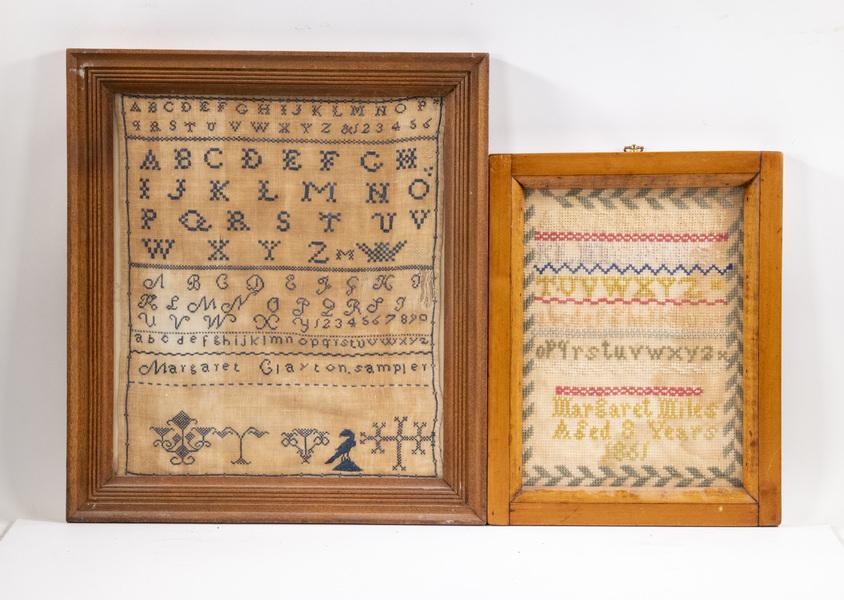 ABCDEFGHIJKLMNOP
qRSTUVWXYZ &123456
ABCDEFGH
IJKLMNO
PQRSTUV
WXYZM
ABCDEFGHI
KLMNOPQRST
UVWXY1234567890
abcdefghijklmnopqrstuvwxyz
Margaret Clayton, sampler
TUVWXYZ
opqrstuvwxyz
Margaret Miles
Aged 8 Years
1881